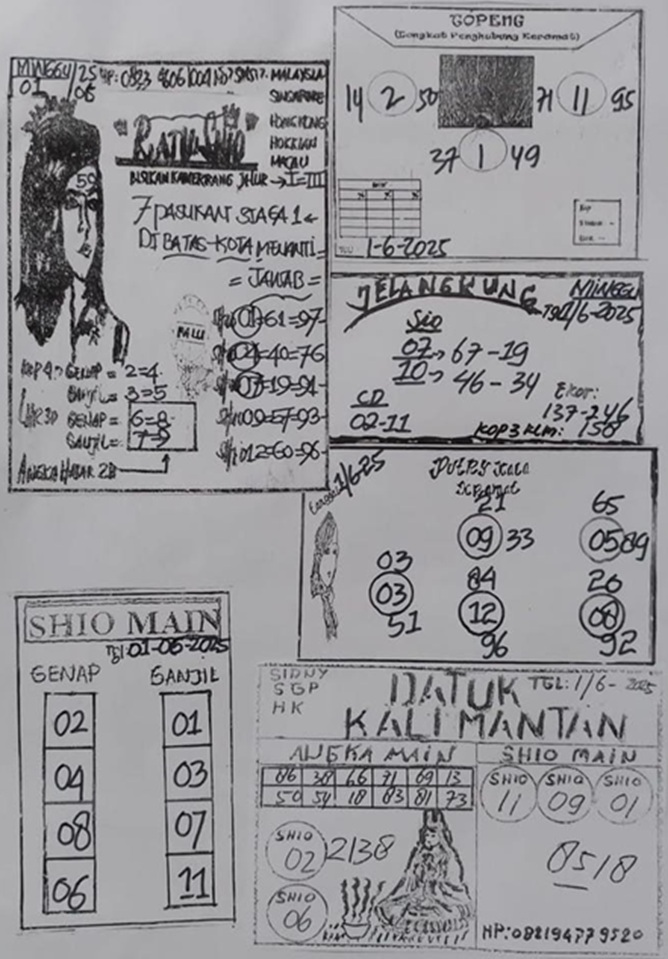 MINGGU 25
01 06
HP: 0823
MALAYSIA
SINGAPORE
HONGKONG
HOKKIAN
MACAU
"RATU SHIO"
JALUR → I=III
50
7 PASUKAN SIAGA 1
DI BATAS-KOTA MENANTI
= JAWAB =
01=61=97
04=40=76
07=19=91
09=57=93
012=60=96
GENAP = 2=4
GANJIL = 3=5
GENAP = 6=8
GANJIL = 7=9
ANGKA HAJAR 2D
TOPENG
(Tongkat Penghubung Keramat)
14 2 50
71 11 95
37 1 49
1-6-2025
JELANGKUNG
MINGGU
1/6-2025
Sio
07 → 67-19
10 → 46-34
CD
02-11
Ekor:
137-246
KOP3 KLM: 158
1/6-25
21
09 33
65
05 89
03
03
51
84
12
96
20
08
92
SHIO MAIN
Tgl 01-06-2025
GENAP GANJIL
02 01
04 03
08 07
06 11
SIDNY
SGP
HK
DATUK
TGL: 1/6-2025
KALIMANTAN
ANGKA MAIN
86 38 66 71 69 13
50 54 18 83 81 73
SHIO
02
2138
SHIO
06
SHIO MAIN
SHIO SHIO SHIO
11 09 01
8518
HP:082194779520